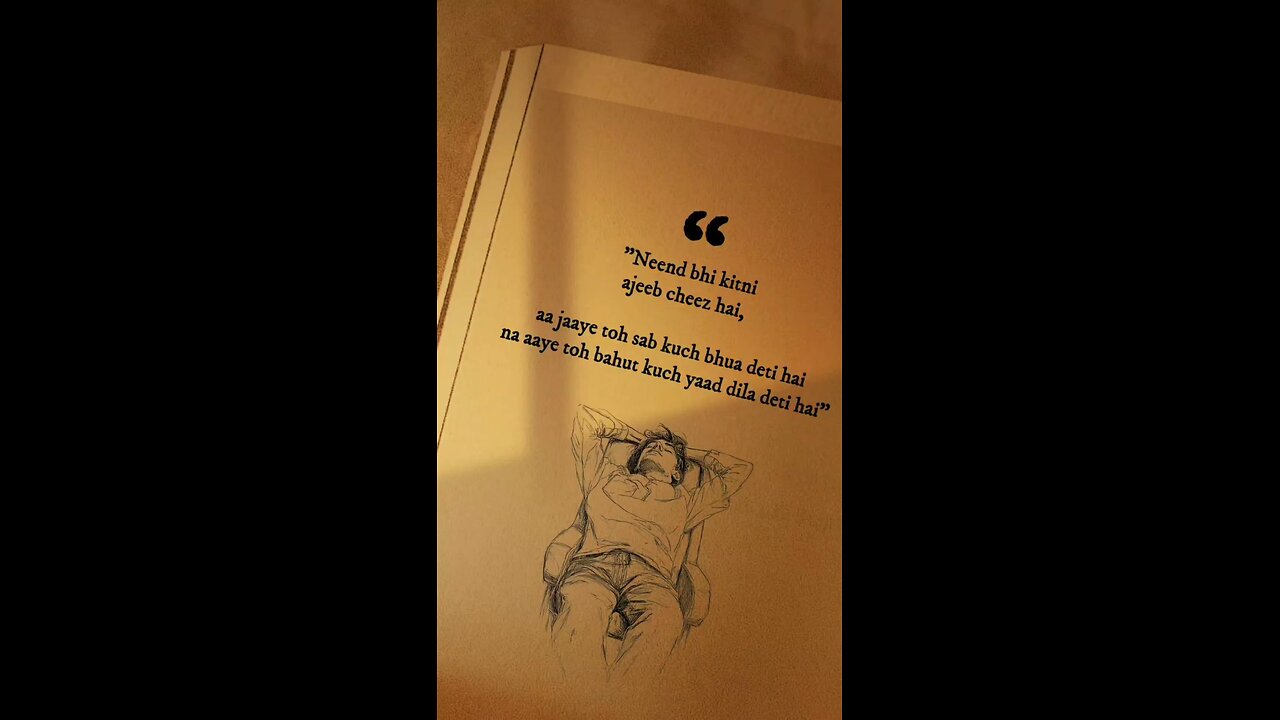 ”Neend bhi kitni
ajeeb cheez hai,
aa jaaye toh sab kuch bhua deti hai
na aaye toh bahut kuch yaad dila deti hai”